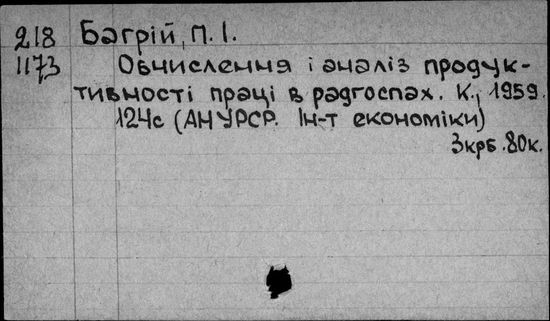 218 Багрій, П. І.
1173 Обчислення і аналіз продук-
тивності праці в радгоспах. К., 1959.
124с (АН УРСР. Ін-т економіки)
3 крб. 80к.